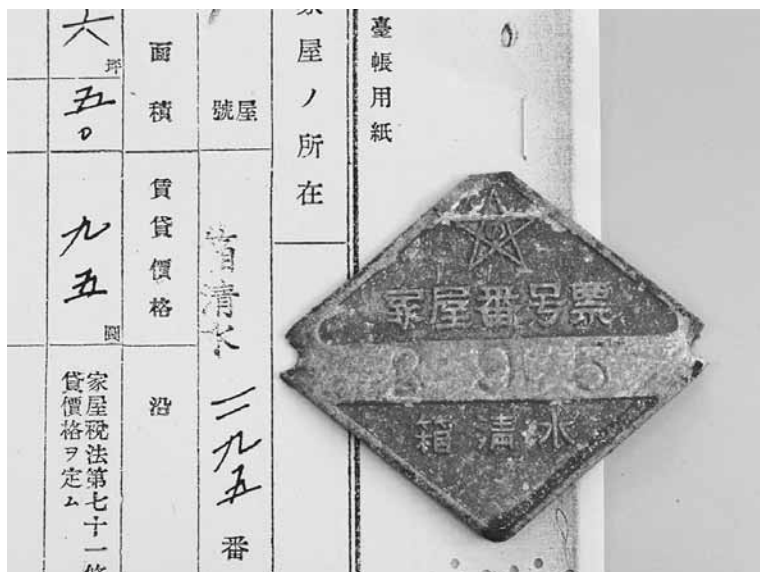 臺帳用紙
家屋ノ所在
屋號
箱清水 二九五 番
面積
賃貸價格
沿
六坪
五〇
九五圓
家屋税法第七十一條
貸價格ヲ定ム
家屋番号票
295
箱清水